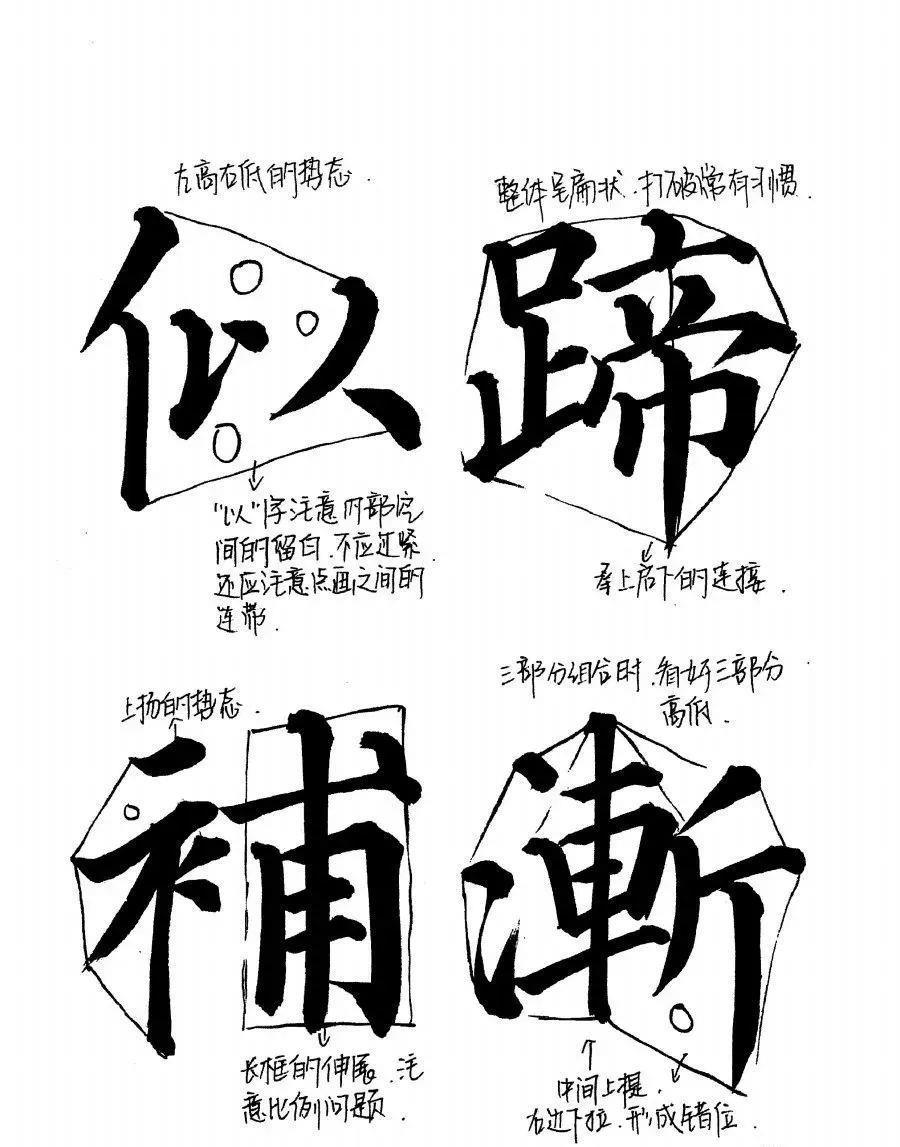 左高右低的势态.
似
"以"字注意内部空
间的留白.不应过紧
还应注意点画之间的
连带.
整体呈扁状.打破常有习惯.
蹄
承上启下的连接.
上扬的势态.
補
长框的伸展.注
意比例问题.
三部分组合时.看好三部分
高低.
漸
中间上提.
右边下拉.形成错位.